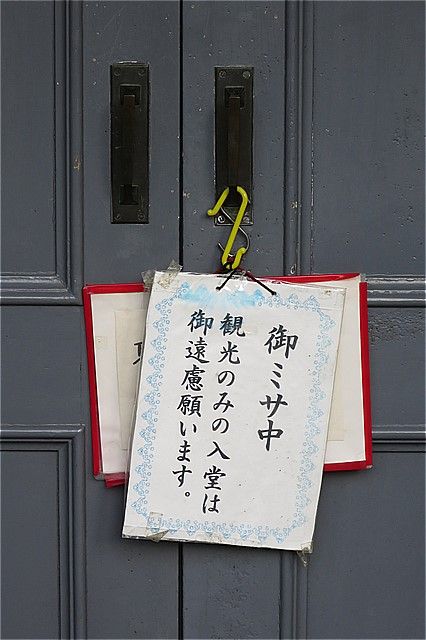 御ミサ中
観光のみの入堂は
御遠慮願います。